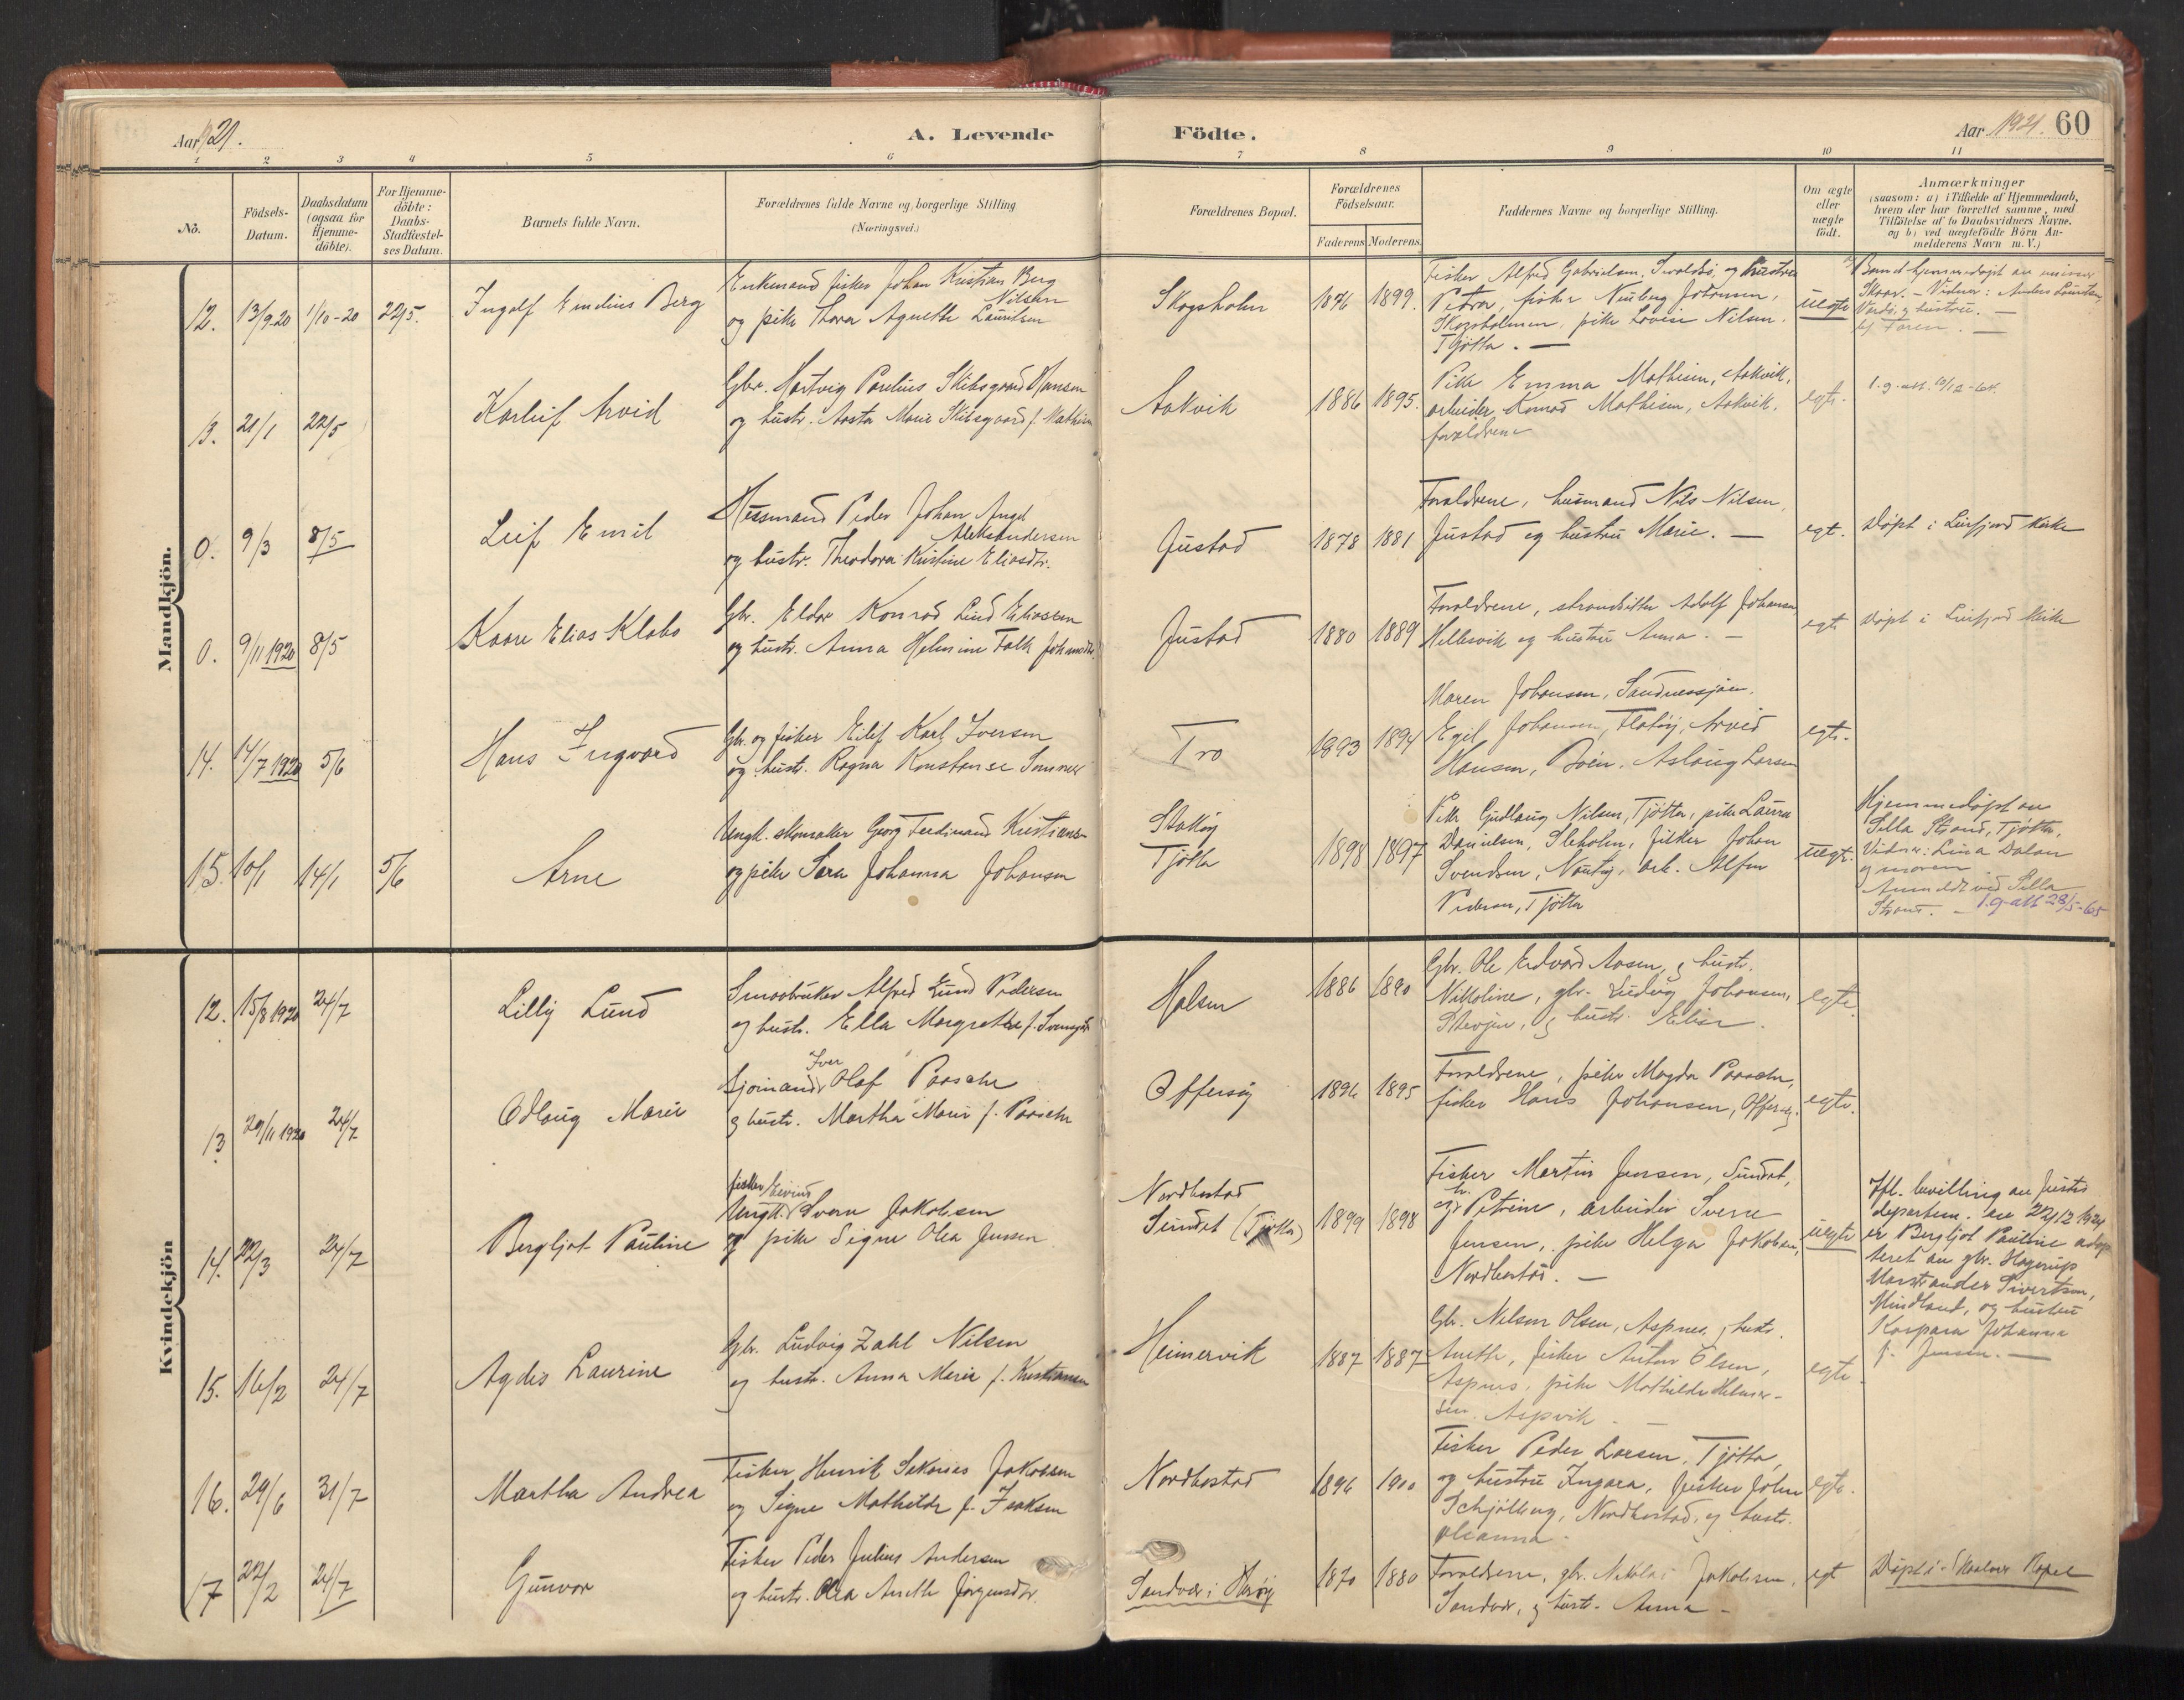 Aar 1921.
A. Levende
Födte.
Aar 1921. 60
1 2 3 4 5 6 7 8 9 10 11
No.
Födsels-
Datum.
Daabsdatum
(ogsaa for
Hjemme-
döbte).
For Hjemme-
döbte:
Daabs-
Stadfæstel-
ses Datum.
Barnets fulde Navn.
Forældrenes fulde Navne og borgerlige Stilling
(Næringsvei.)
Forældrenes Bopæl.
Forældrenes
Födselsaar.
Faderens Moderens
Faddernes Navne og borgerlige Stilling.
Om ægte
eller
uægte
födt.
Anmærkninger
(saasom: a) i Tilfælde af Hjemmedaab,
hvem der har forrettet samme, med
Tilföielse af to Daabsvidners Navne.
og b) ved uægtefödte Börn An-
melderens Navn m. V.)
Mandkjön.
12. 13/9-20 1/10-20 22/5. Ingolf Emelius Berg
Enkemand fisker Johan Kristian Berg
og pike Thora Agnethe Lauritsen
Nilsen
Skogsholm 1876 1899.
Fisker Alfred Gabrielsen, og hustru
Petra, fisker Johansen,
Skogsholmen, pike Lovise Nilsen,
Tjøtta. —
uegte
Barnet hjemmedøpt av
Skaar. – Vidner: Anders Lauritsen,
og hustru. —
13. 21/1 22/5 Karleif Arvid
Gbr. Hartvig Parelius Skibsgaard Hansen
og hustr. Aasta Marie Skibsgaard f. Mathisen
Aakvik 1886 1895.
Pike Emma Mathisen, Aakvik,
arbeider Konrad Mathisen, Aakvik,
forældrene
egte.
1.g. att. 10/12-64.
0. 9/3 8/5 Leif Emil
Husmand Peder Johan Angel
Aleksandersen
og hustr. Theodora Kristine Eliasdtr.
Justad 1878 1881
Forældrene, husmand Nils Nilsen,
Justad og hustru Marie. —
egt. Døpt i Leirfjord kirke
0. 9/11 1920 8/5 Kaare Elias Klabo
Gbr. Eldor Konrad Lind Eliassen
og hustr. Anna Helmine Falk Johansdtr.
Justad 1880 1889
Forældrene, strandsitter Adolf Johansen
Hellesvik og hustru Anna. —
egte Døpt i Leirfjord kirke
14. 14/7 1920 5/6 Hans Ingvard
Gbr. og fisker Eilif Karl Iversen
og hustr. Ragna Konstanse
Tro 1893 1894
Maren Johansen, Sandnessjøen.
Egil Johansen, Flatøy, Arvid
Hansen, Bøen. Aslaug Larsen
egte.
15. 10/1 14/1 5/6 Arne
Ungk. skomaker Georg Ferdinand Kristiansen
og pike Sara Johanna Johansen
Stokkøy
Tjøtta
1898 1897
Pike Gudlaug Nilsen, Tjøtta, pike Laura
Danielsen, fisker Johan
Svendsen, arb. Alfon
Pedersen, Tjøtta
uegt.
Hjemmedøpt av
Silla Strand, Tjøtta,
Vidner: Lina Dalan
og moren
Anmeldt ved Silla
Strand. – 1.g. att 28/5-65
Kvindekjön
12. 15/8 1920 24/7 Lilly Lund
Smaabruker Alfred Lund Pedersen
og hustr. Ella Margrethe f.
Halsen 1886 1890
Gbr. Ole Edvard Aasen, og hustr.
Nikoline, gbr. Ludvig Johansen,
og hustr. Elise.
egte.
13 29/11 1920 24/7 Odlaug Marie
Iver
Sjømand Olaf Paasche
og hustr. Martha Marie f. Paasche
Offersøy 1896 1895
Forældrene, pike Magda Paasche,
fisker Hans Johansen, Offersøy.
egte.
14. 22/3 24/7 Bergljot Pauline
fisker Eivind
Ungk. Svern Jakobsen
og pike Signe Olea Jensen
Nordbostad
Sundet (Tjøtta) 1899 1898
Fisker Martin Jensen, Sundet,
og h. Petrine, arbeider Sverre
Jensen, pike Helga Jakobsen,
Nordbostad. —
uegte
Ifl. bevilling av justis
departem. av 22/12 1924
er Bergljot Pauline adop
teret av gbr. Hagerup
Marstrander Sivertsen,
Mindland, og hustru
Kaspara Johanna
f. Jensen. —
15. 16/2 24/7 Agdis Laurine
Gbr. Ludvig Zahl Nilsen
og hustr. Anna Marie f. Kristiansen
Heimervik 1887 1887
Gbr. Nelson Olsen, Aspnes, og hustr.
Anette, fisker Anton Olsen,
Aspnes, pike Mathilde Helmer-
sen Aspvik. —
egte.
16. 29/6 31/7 Martha Andrea
Fisker Henrik Sakarias Jakobsen
og Signe Mathilde f. Isaksen
Nordbostad 1896 1900
Fisker Peder Larsen, Tjøtta,
og hustru Ingara, fisker Johan
Schjølberg, Nordbostad, og hustr.
Oleanna.
egte.
17 22/2 24/7 Gunvor
Fisker Peder Julius Andersen
og hustr. Olea Anette Jørgensdtr.
Sandvær i Herøy 1870 1880
Forældrene, gbr. Nikolai Jakobsen,
Sandvær, og hustr. Anna —
egt Døpt i Skaalvær Kapel